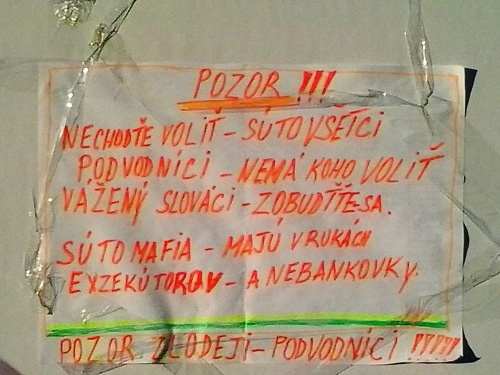 POZOR !!!
NECHOĎTE VOLIŤ - SÚTOVŠETCI
PODVODNÍCI - NEMÁ KOHO VOLIŤ
VÁŽENÝ SLOVÁCI - ZOBUĎŤE SA.
SÚTO MAFIA - MAJÚ V RUKÁCH
EXZEKÚTOROV - A NEBANKOVKY.
POZOR ZLODEJI - PODVODNÍCI !!!!!!